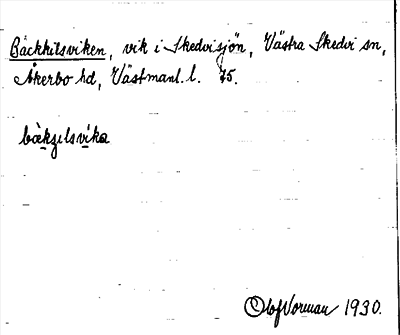 Bäckhilsviken, vik i Skedvisjön, Västra Skedvi sn,
Åkerbo hd, Västmanl. l. 75.
Olof Norman 1930.